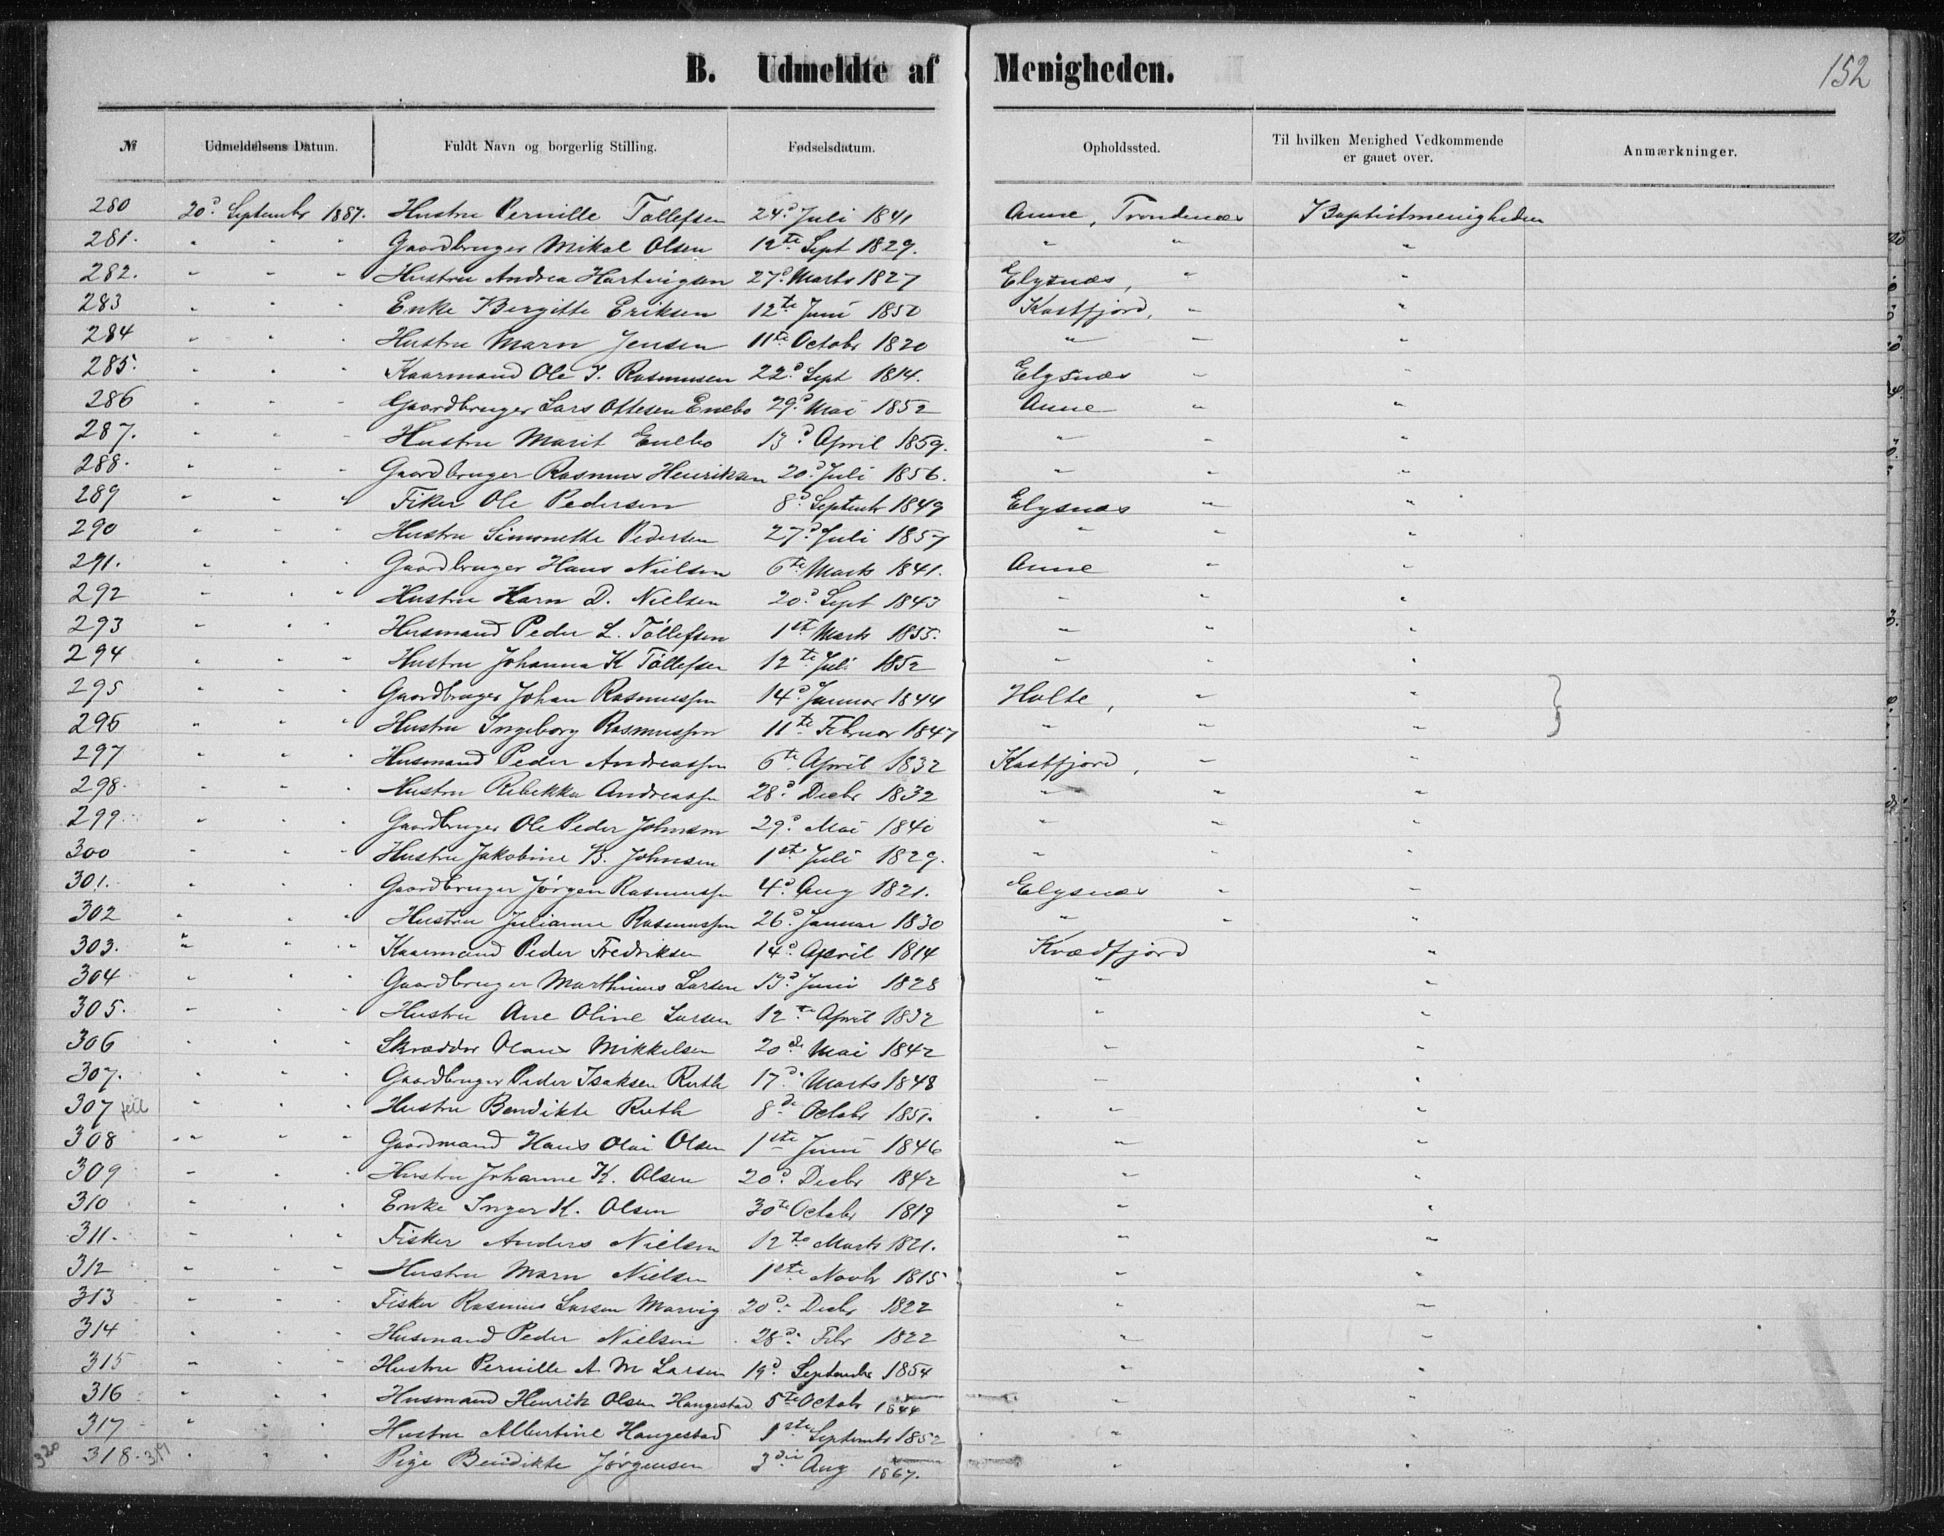 152
B. Udmeldte af Menigheden.
№ Udmeldelsens Datum. Fuldt Navn og borgerlig Stilling. Fødselsdatum. Opholdssted. Til hvilken Menighed Vedkommende er gaaet over. Anmærkninger.
280 20d. September 1887. Hustru Pernille Tøllefsen 24d. Juli 1841 Aune, Trondenæs Baptistmenigheden
281. " " " Gaardbruger Mikal Olsen 12te Sept 1829. " " "
282. " " " Hustru Andrea Hartvigsen 27d. Marts 1827 Elgsnæs, " "
283 " " " Enke Bergitte Eriksen 12te Juni 1850 Kastfjord, " "
284 " " " Hustru Marn Jensen 11te Octobr 1820 " " "
285. " " " Kaarmand Ole J. Rasmusen 22d. Sept 1814. Elgsnæs " "
286 " " " Gaardbruger Lars Ottesen Enebo 29d. Mai 1852 Aune " "
287. " " " Hustru Marit Enebo 13d. April 1859. " " "
288. " " " Gaardbruger Rasmus Henriksen 20d. Juli 1856. " " "
289 " " " Fiker Ole Pedersen 8d. Septembr 1849 Elgsnæs " "
290 " " " Hustru Simonette Pedersen 27d. Juli 1857 " " "
291. " " " Gaardbruger Hans Nielsen 6te Marts 1841. Aune " "
292 " " " Hustru Harn D. Nielsen 20d. Sept 1843 " " "
293 " " " Husmand Peder L. Tøllefsen 1st. Marts 1855. " " "
294 " " " Hustru Johanna K Tøllefsen 12te Juli 1852 " " "
295 " " " Gaardbruger Johan Rasmussen 14d. Januar 1844 Holte, " " }
296 " " " Hustru Ingeborg Rasmussen 11te Februar 1847 " " "
297 " " " Husmand Peder Andreassen 6te April 1832 Kastfjord, " "
298. " " " Hustru Rebekka Andreassen 28d. Decbr 1832 " " "
299. " " " Gaardbruger Ole Peder Johnsen 29d. Mai 1840 " " "
300 " " " Hustru Jakobine B. Johnsen 1st. Juli 1829. " " "
301. " " " Gaardbruger Jørgen Rasmussen 4d. Aug 1821. Elgsnæs " "
302 " " " Hustru Julianne Rasmussen 26d. Januar 1830 " " "
303. " " " Kaarmand Peder Fredriksen 14d. April 1814 Kvædfjord "
304 " " " Gaardbruger Marthinus Larsen 13d. Juni 1828 " "
305. " " " Hustru Ane Oline Larsen 12te April 1832 " "
306 " " " Skrædder Olaus Mikkelsen 20de Mai 1842 " "
307. " " " Gaardbruger Peder Isaksen Ruth 17d. Marts 1848 " "
307 feil " " " Hustru Bendikte Ruth 8de Octobr 1851. " "
308 " " " Gaardmand Hans Olai Olsen 1ste Juni 1846 " "
309 " " " Hustru Johanne K. Olsen 20d. Decbr 1842 " "
310 " " " Enke Inger K. Olsen 30te Octobr 1819 " "
311. " " " Fisker Anders Nielsen 12te Marts 1821. " "
312 " " " Hustru Marn Nielsen 1ste Novbr 1815 " "
313 " " " Fisker Rasmus Larsen Marvig 20d. Decbr 1822 " "
314 " " " Husmand Peder Nielsen 28d. Febr 1822 " "
315 " " " Hustru Pernille A. M Larsen 19d. September 1854 " "
316 " " " Husmand Henrik Olsen Haugestad 5te Octobr 1844 " "
317 " " " Hustru Albertine Haugestad 1ste Septembr 1852 " "
320 318. 319 " " " Pige Bendikte Jørgensen 3die Aug 1867. " "